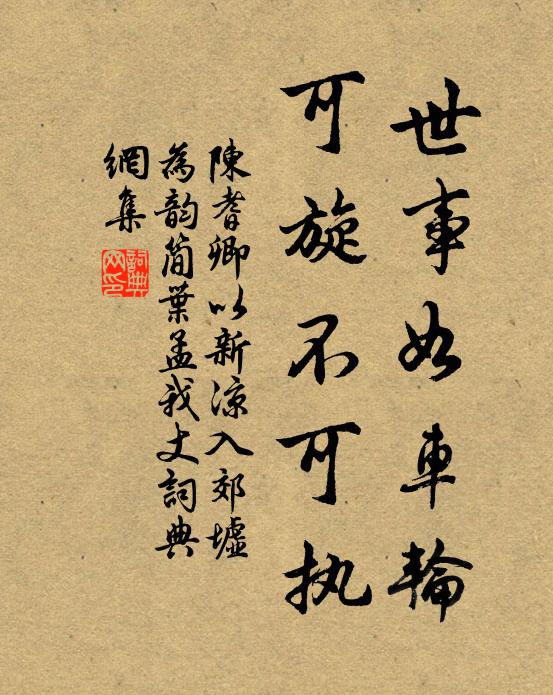 世事如車輪
可旋不可执
陳耆卿以新涼入郊墟
為韵簡葉孟我丈詞典
網集
詞典網印